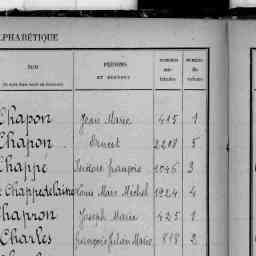 LPHABÉTIQUE
NOM PRÉNOMS ET SURNOMS NUMÉROS MA- TRICULES NUMÉROS DU VOLUME
Chapon Jean Marie 415 1
Chapon Ernest 2208 5
Chappé Isidore françois 1046 3
Chappedelaine Louis Marc Michel 1924 4
Chapron Joseph Marie 425 1
Charles françois Julien Marie 818 2